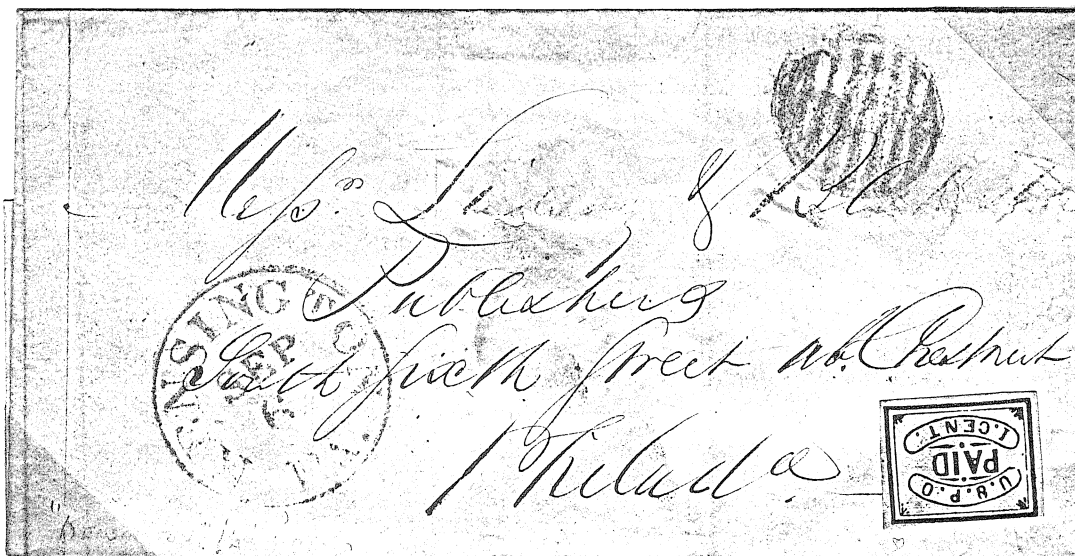 Messrs. Lindsay &
Publishers
South Sixth Street ab. Chestnut
Philada
KENSINGTO
SEP
6
Pa.
U.S.P.O.
PAID
1.CENT.